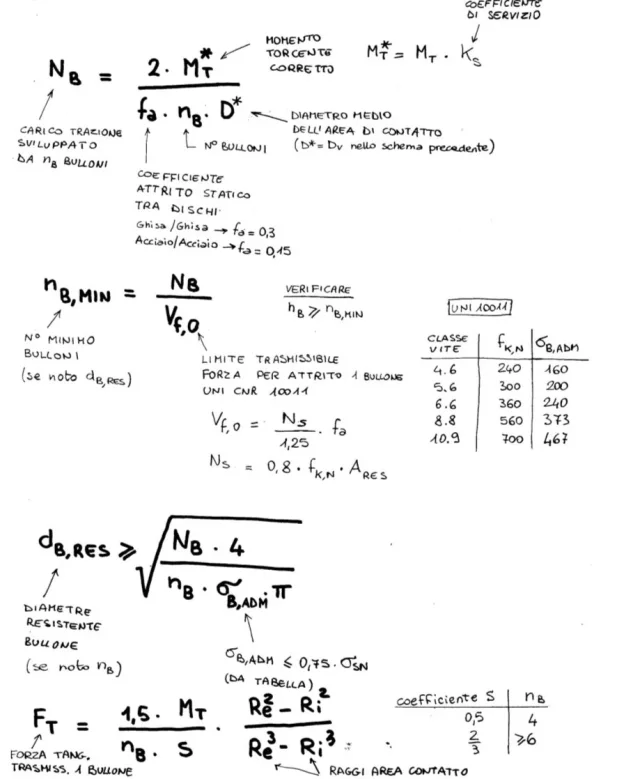 COEFFICIENTE
DI SERVIZIO
MOMENTO
TORCENTE
CORRETTO
M_T^* = M_T · K_S
N_B = 2 · M_T^* / (f_a · n_B · D^*)
CARICO TRAZIONE
SVILUPPATO
DA n_B BULLONI
DIAMETRO MEDIO
DELL'AREA DI CONTATTO
(D* = Dv nello schema precedente)
N° BULLONI
COEFFICIENTE
ATTRITO STATICO
TRA DISCHI
Ghisa/Ghisa → f_a = 0,3
Acciaio/Acciaio → f_a = 0,15
n_B,MIN = N_B / V_f,0
VERIFICARE
n_B ⩾ n_B,MIN
N° MINIMO
BULLONI
(se noto d_B,RES)
LIMITE TRASMISSIBILE
FORZA PER ATTRITO 1 BULLONE
UNI CNR 10011
V_f,0 = N_s / 1,25 · f_a
N_s = 0,8 · f_K,N · A_RES
UNI 10011
CLASSE VITE f_K,N σ_B,ADM
4.6 240 160
5.6 300 200
6.6 360 240
8.8 560 373
10.9 700 467
d_B,RES ⩾ √(N_B · 4 / (n_B · σ_B,ADM · π))
DIAMETRO
RESISTENTE
BULLONE
(se noto n_B)
σ_B,ADM ⩽ 0,75 · σ_SN
(DA TABELLA)
F_T = 1,5 · M_T / (n_B · S) (Re^2 - Ri^2) / (Re^3 - Ri^3)
FORZA TANG.
TRASMISS. 1 BULLONE
RAGGI AREA CONTATTO
coefficiente S n_B
0,5 4
2/3 ⩾6